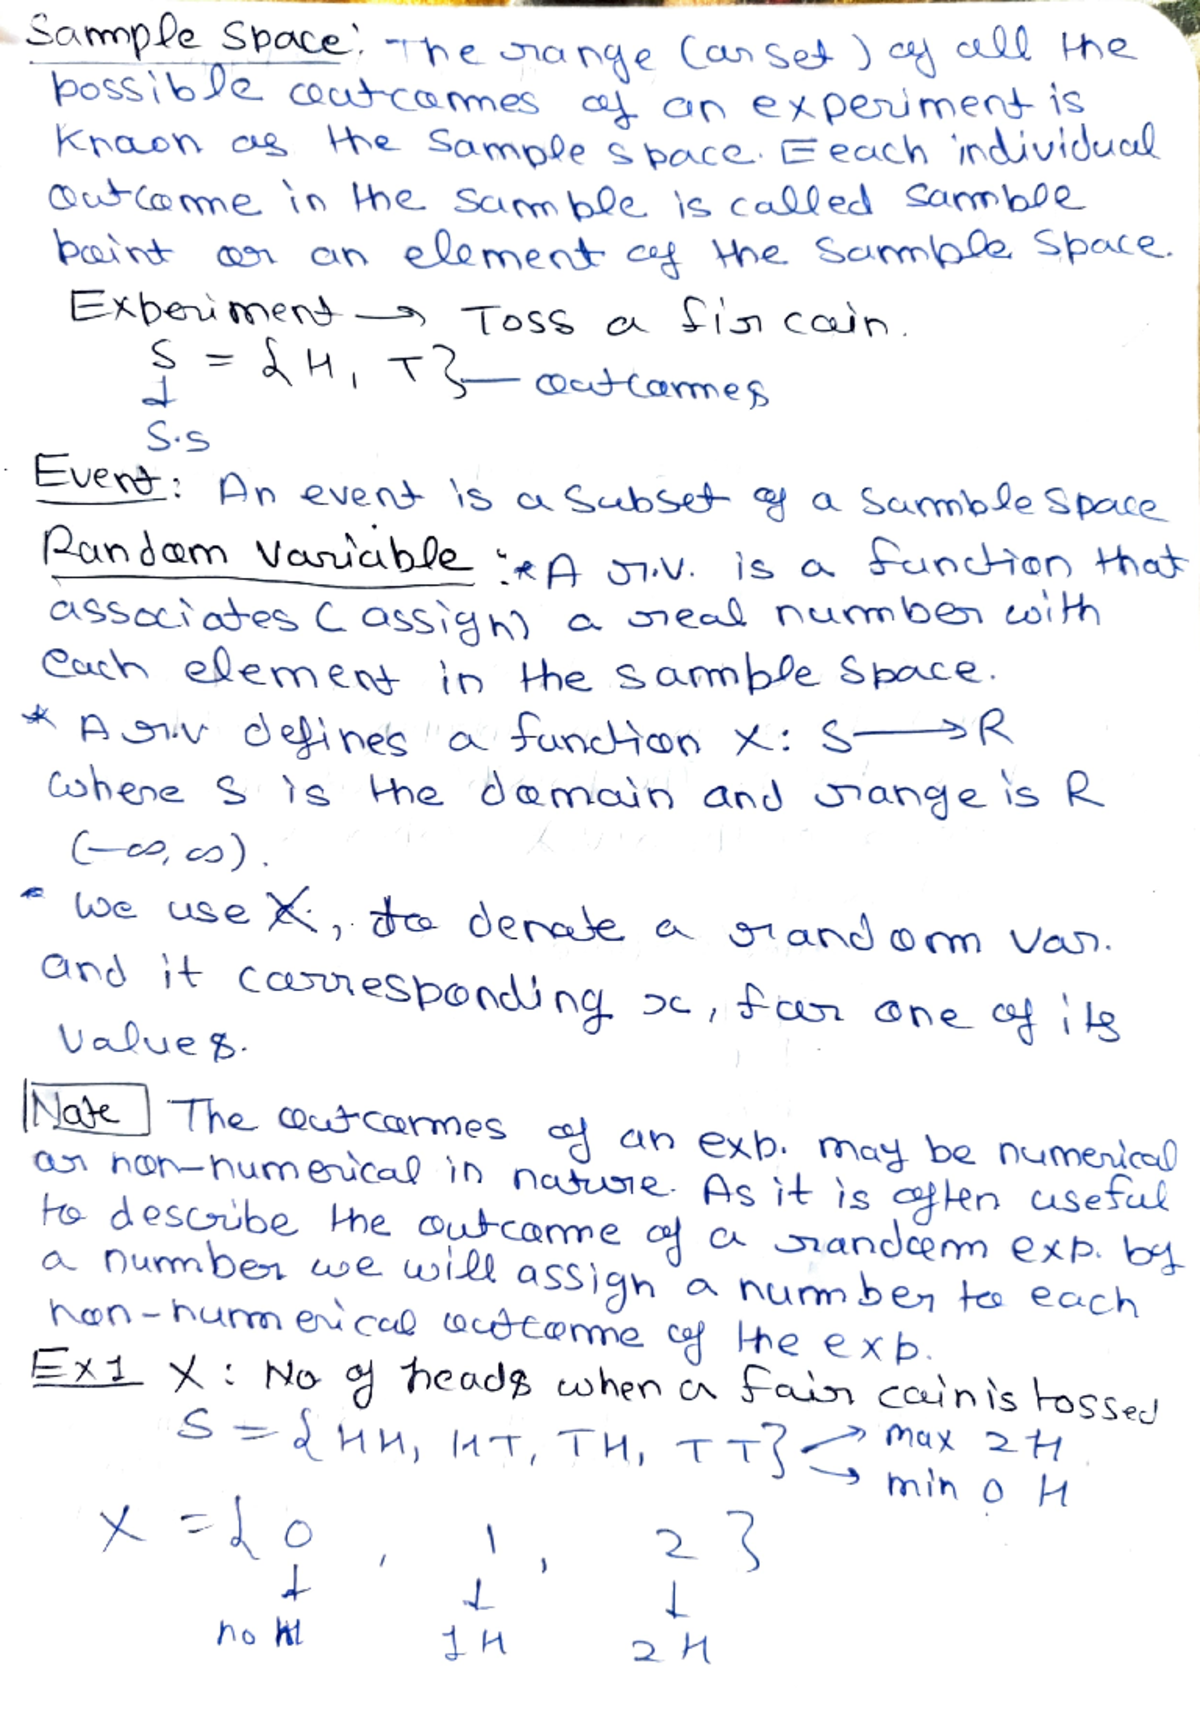 Sample Space: The range (or set) of all the
possible outcomes of an experiment is
known as the Sample space. Eeach individual
outcome in the sample is called sample
point or an element of the sample space.
Experiment → Toss a fir coin.
S = {H, T} — outcomes
↓
S.S
Event: An event is a subset of a sample space
Random Variable :* A r.v. is a function that
associates (assign) a real number with
each element in the sample space.
* A r.v defines a function X: S → R
where S is the domain and range is R
(-∞, ∞).
* We use X, to denote a random var.
and it corresponding x, for one of its
values.
Note The outcomes of an exp. may be numerical
or non-numerical in nature. As it is often useful
to describe the outcome of a random exp. by
a number we will assign a number to each
non-numerical outcome of the exp.
Ex1 X : No of heads when a fair coin is tossed
S = {HH, HT, TH, TT} → max 2H
→ min 0 H
X = {0, 1, 2}
↓ ↓ ↓
no H 1H 2H